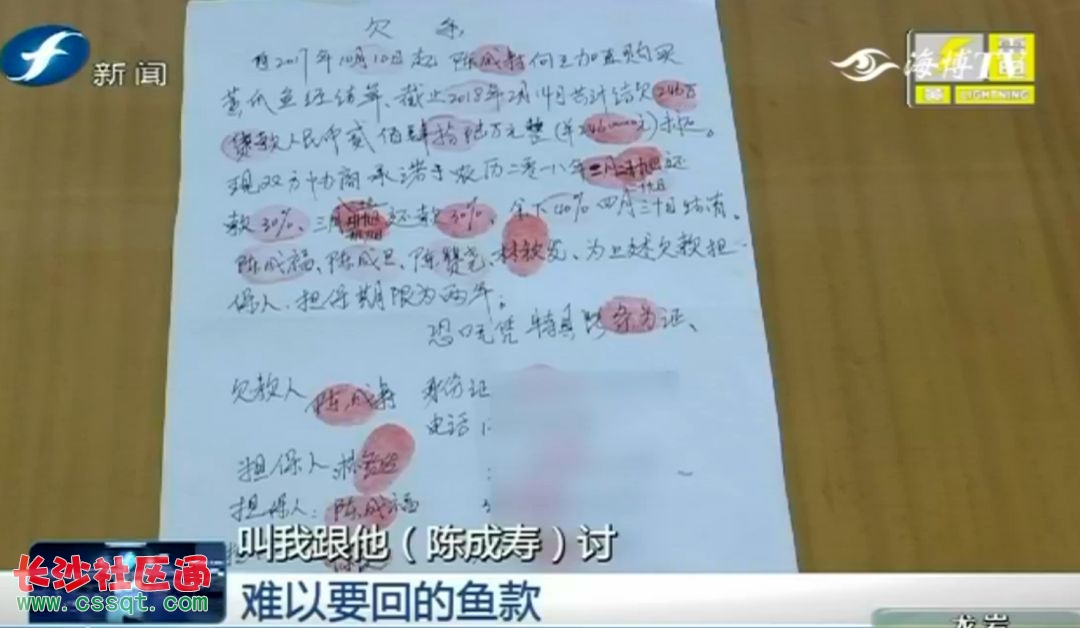 新闻
海博TV
電
LIGHTNING
欠条
自2017年10月10日起 陈成寿向王加直购买
黄爪鱼经结算、截止2018年2月14日共计结欠246万
货款人民币贰佰肆拾陆万元整
现双方协商承诺于农历二零一八年二月
还
款30%、三月 还款30%、余下40%四月三十日结清。
陈成福、陈成旦、陈赞尧、林钦发、为上述欠款担
保人、担保期限为两年;
恐口无凭 特具 条为证、
欠款人 陈成寿 身份证
电话
担保人
担保人:陈成福
叫我跟他(陈成寿)讨
难以要回的鱼款
长沙社区通
www.cssqt.com
龙岩